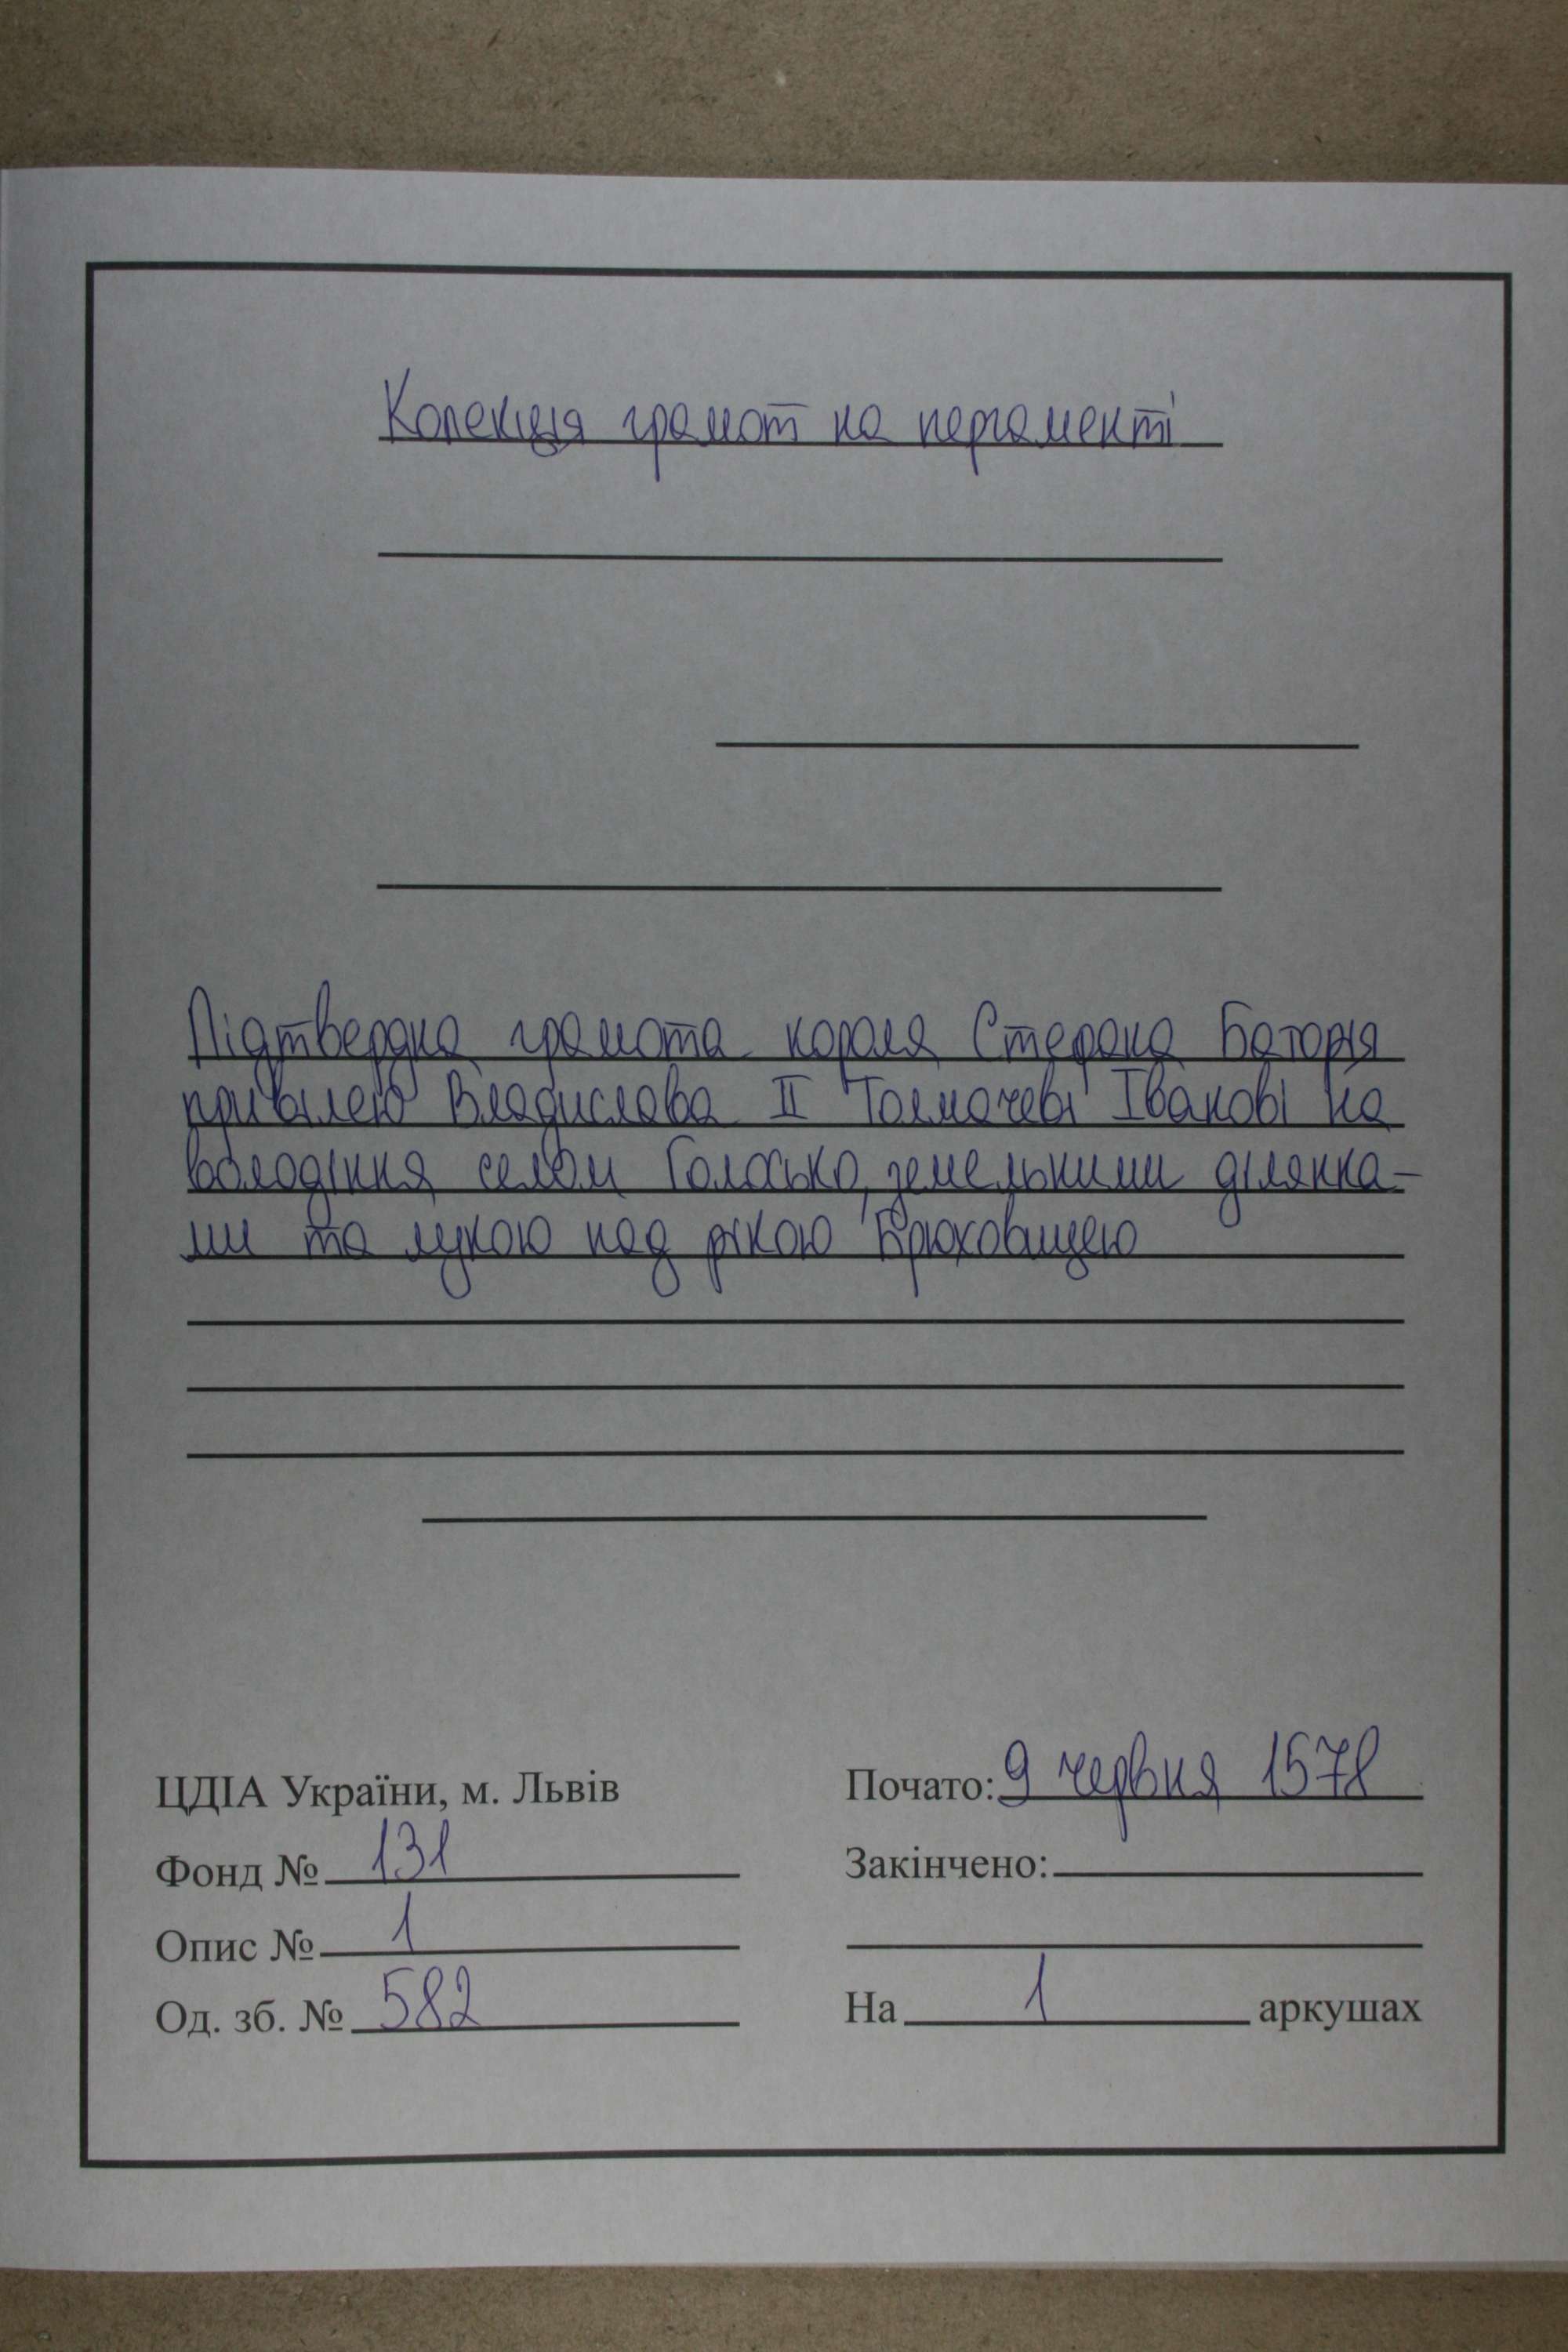 Колекція грамот на пергаменті
Підтвердна грамота короля Стефана Баторія
привілею Владислава II Толмачеві Івакові на
володіння селом Голосько, земельними ділянка-
ми та лукою над рікою Брюховицею
ЦДІА України, м. Львів
Почато: 9 червня 1578
Фонд № 131
Закінчено:
Опис № 1
Од. зб. № 582
На 1 аркушах